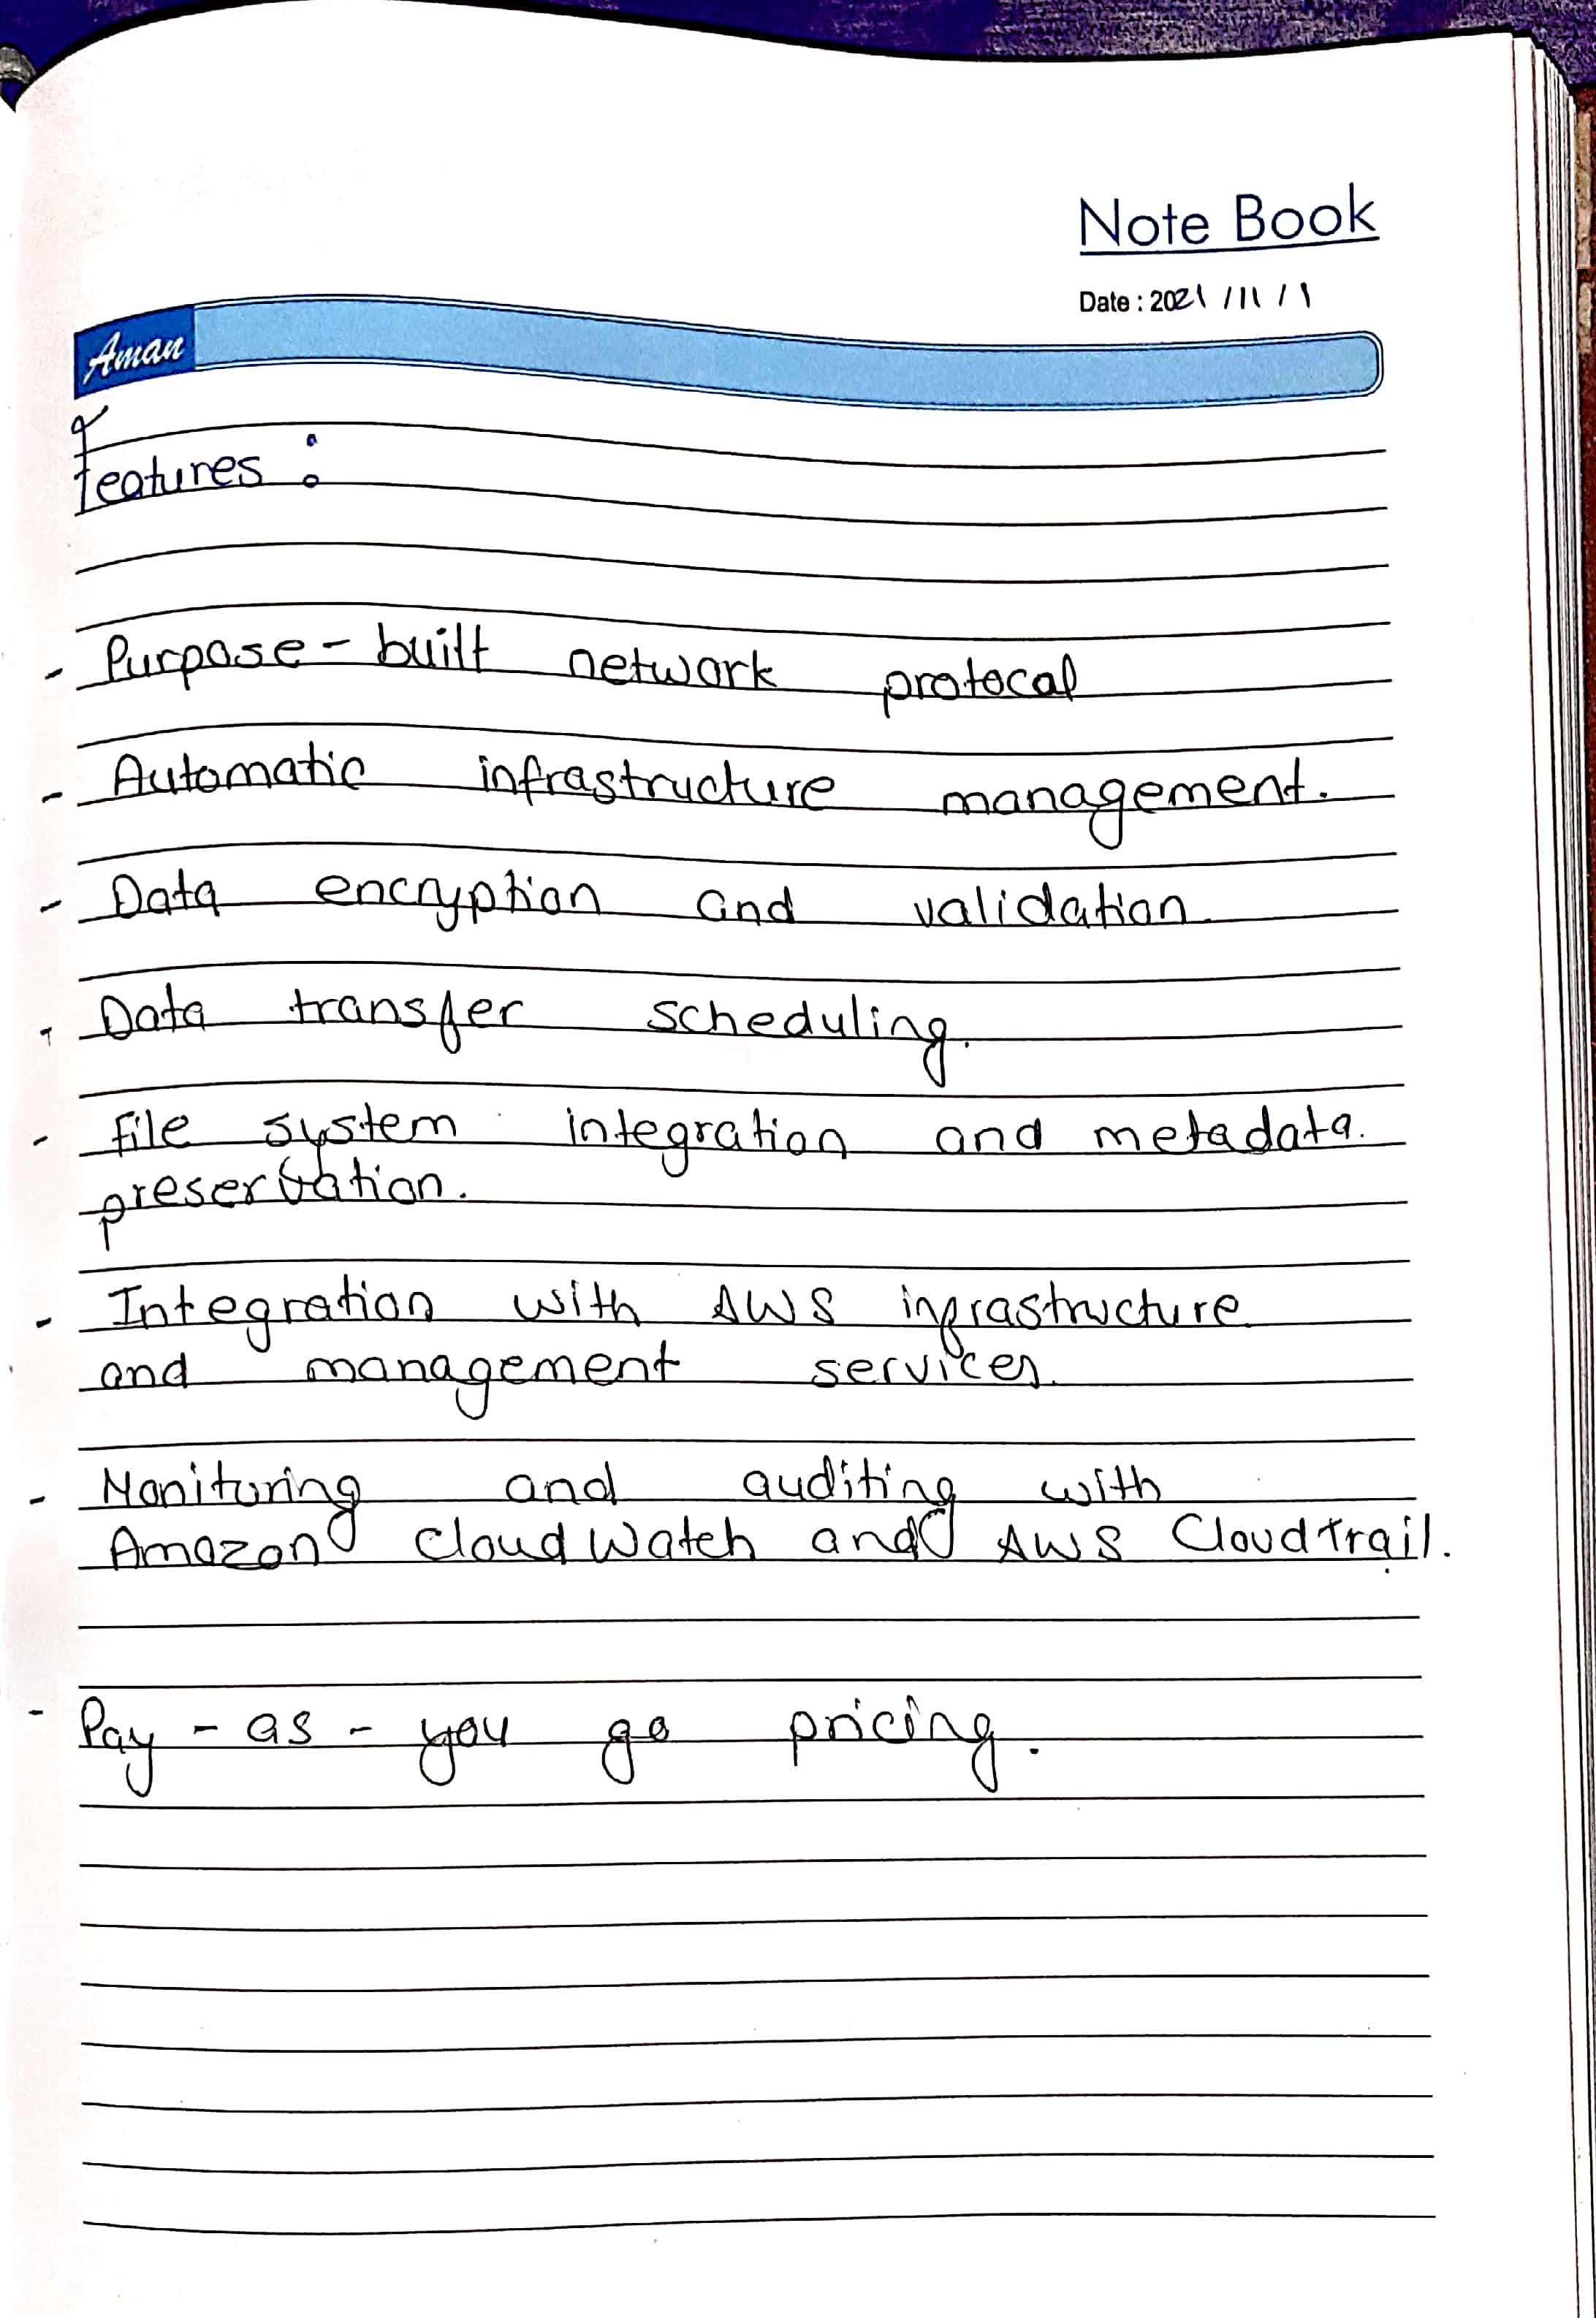 Note Book
Date : 2021 / 11 / 1
Aman
Features :
- Purpose - built network protocal
- Automatic infrastructure management.
- Data encryption and validation.
- Data transfer scheduling.
- File system integration and metadata.
preservation.
- Integration with AWS infrastructure
and management services.
- Monitoring and auditing with
Amazon CloudWatch and AWS Cloudtrail.
- Pay - as - you go pricing.